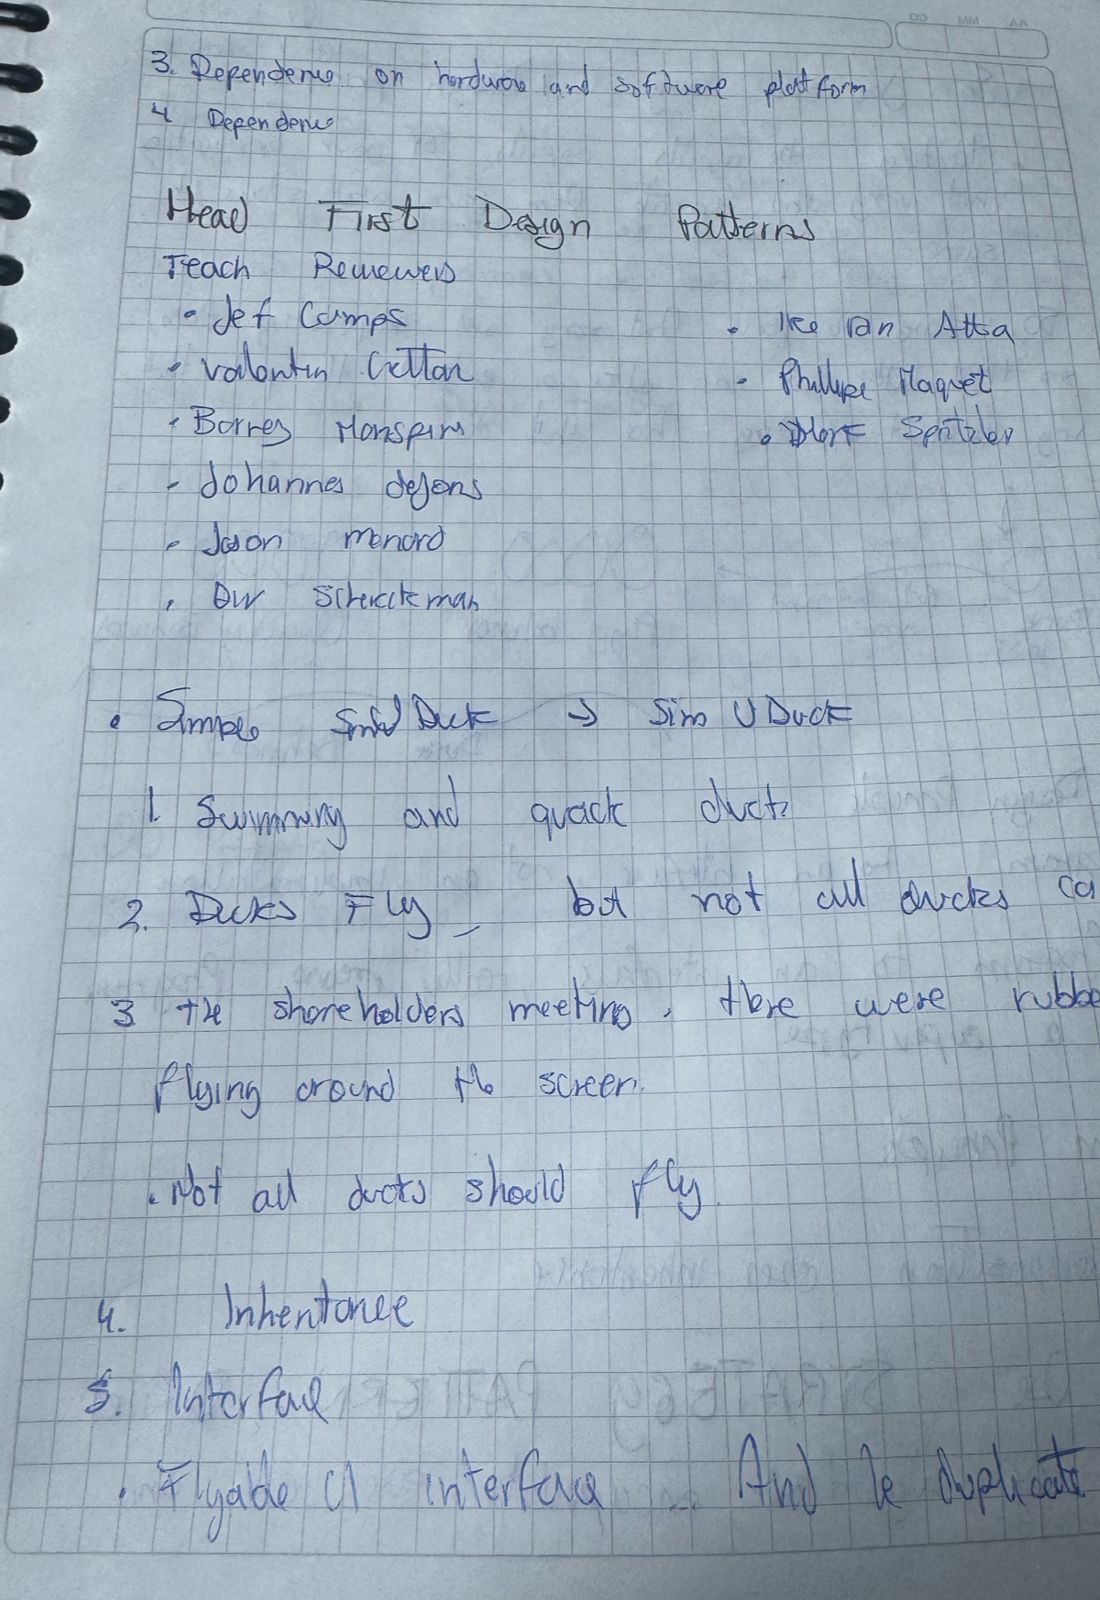 DD MM AA
3. Dependence on hardware and software platform
4 Dependence
Head First Design Patterns
Teach Reviewers
• Jef Cumps
• Valentin Crettaz
• Barney Marispini
• Johannes deJong
• Jason Menard
• Dirk Schreckmann
• Ike Van Atta
• Phillipe Maquet
• Mark Spritzler
• Simple Duck → Sim U Duck
1. Swimming and quack ducks
2. Ducks Fly, but not all ducks ca
3 the shareholders meeting, there were rubbe
flying around the screen.
. Not all ducks should fly.
4. Inheritance
5. Interface
. Flyable () interface ... And duplicate